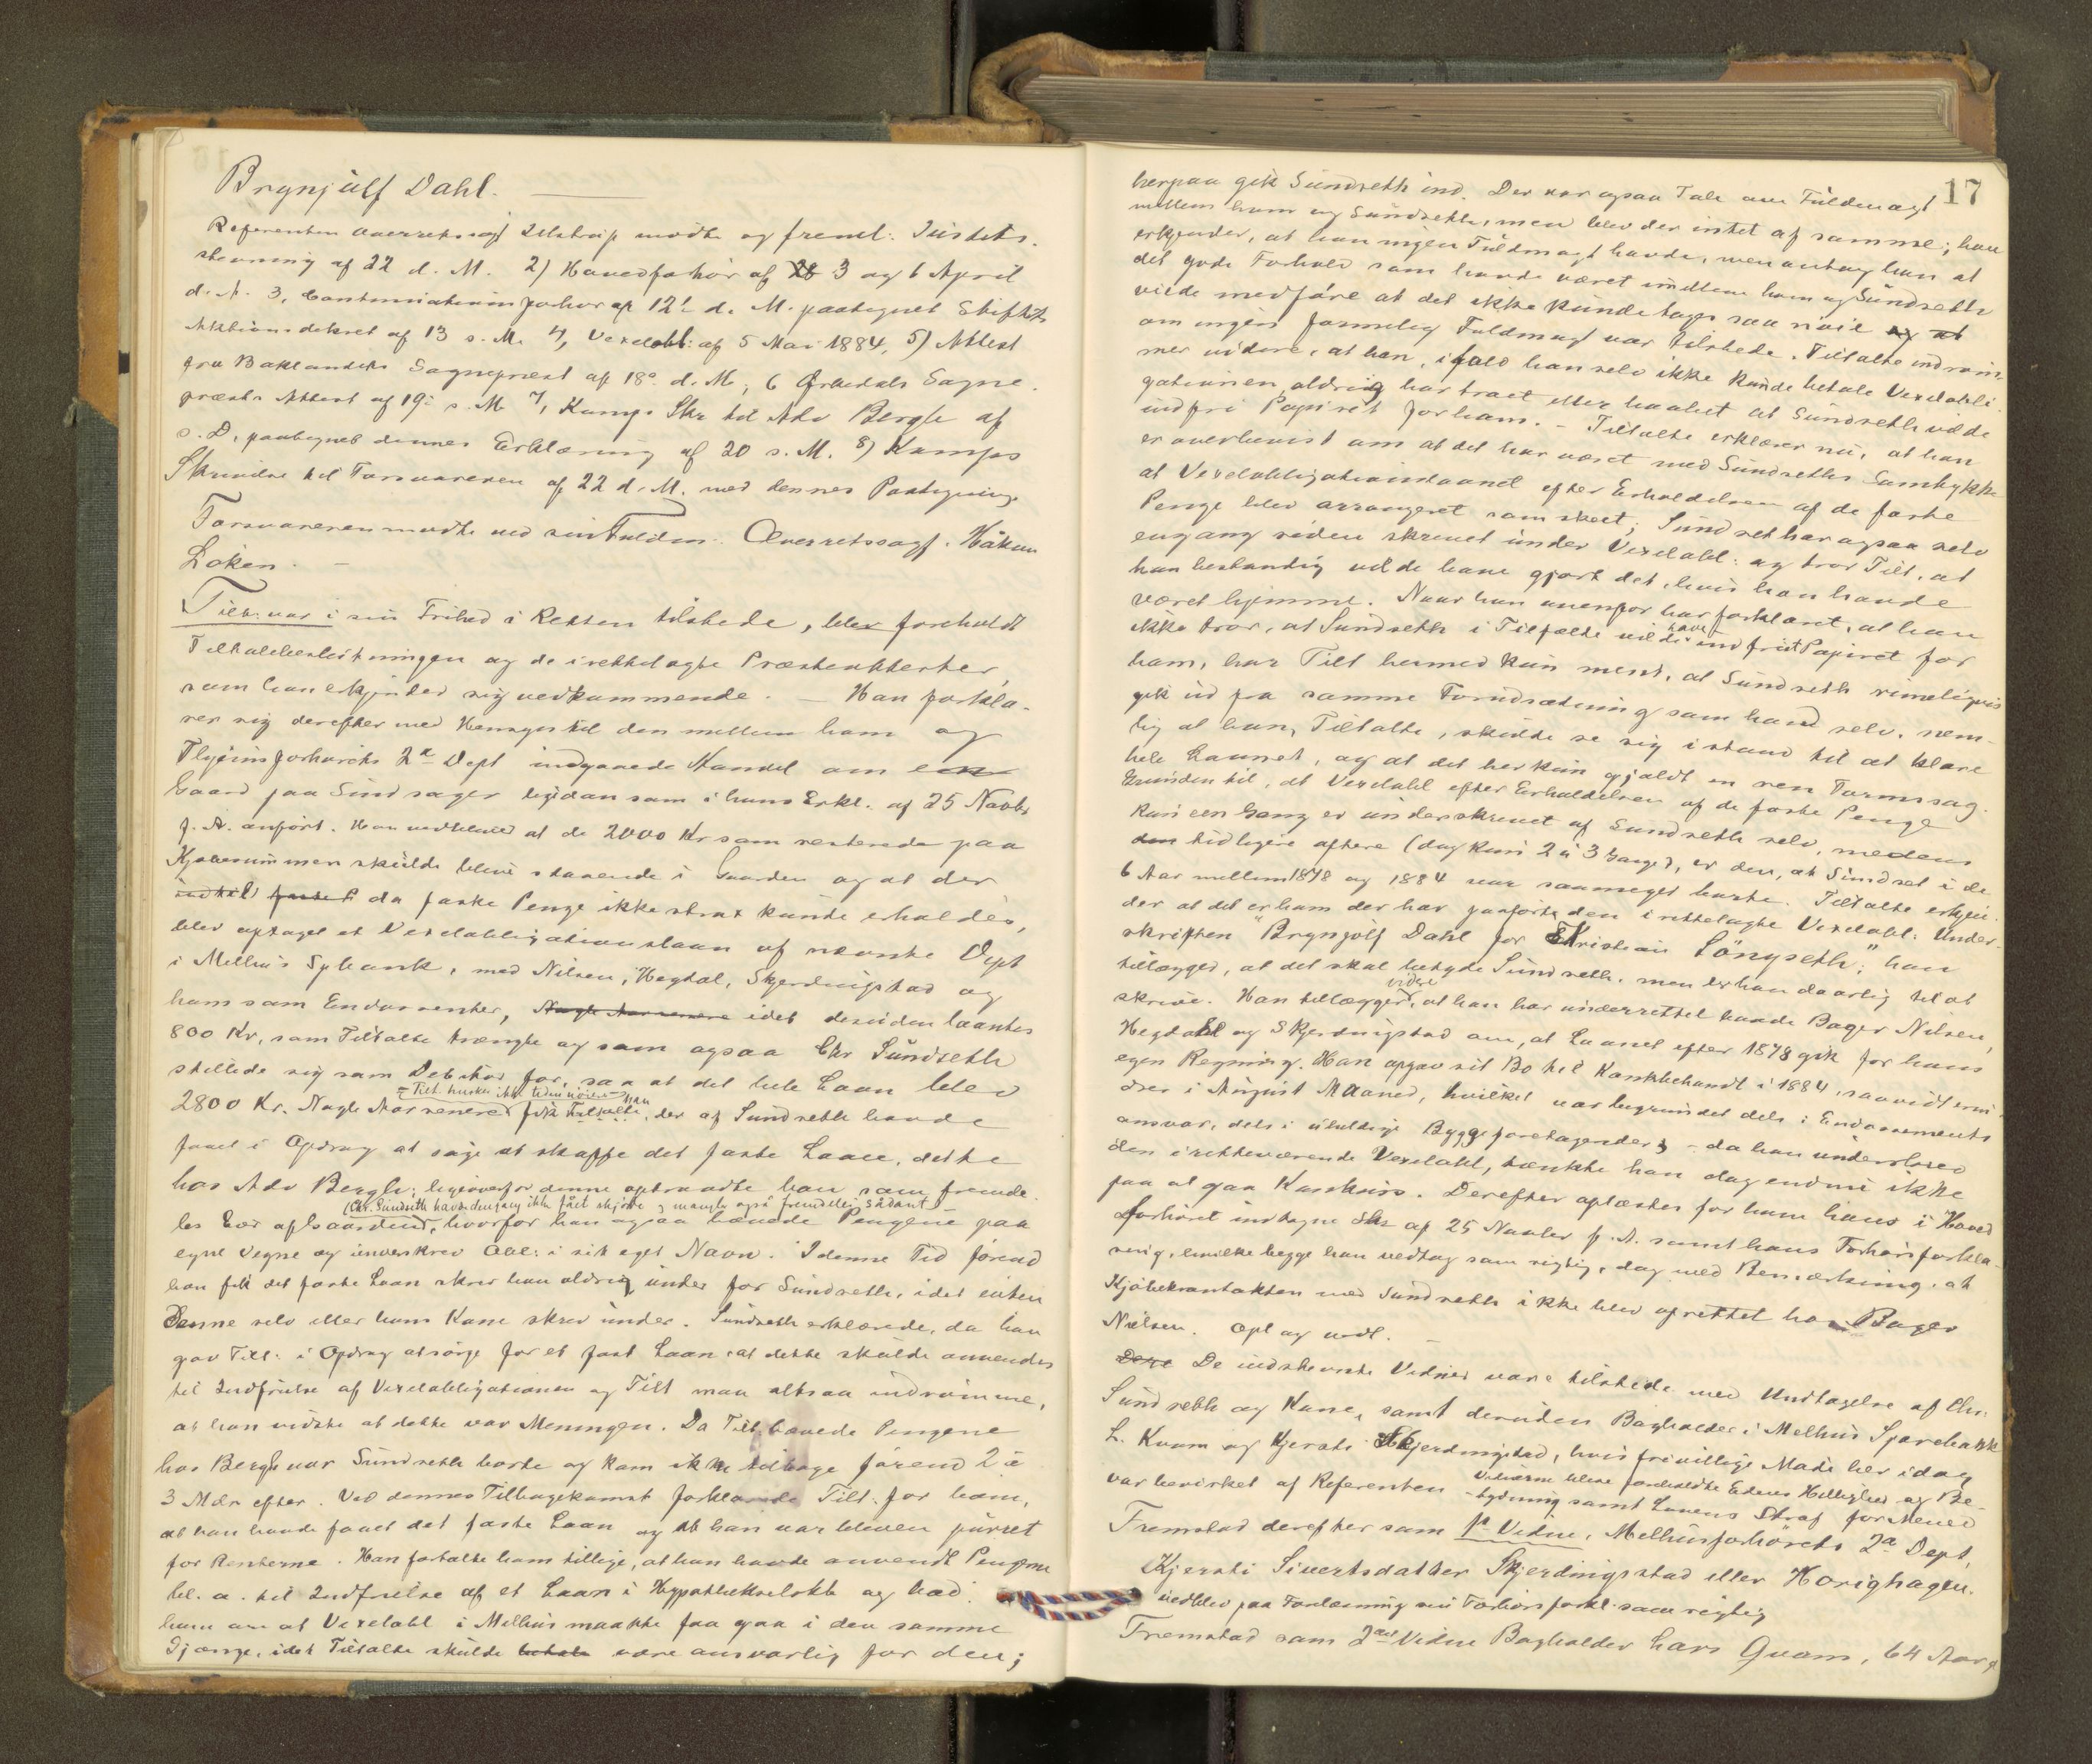 Brynjulf Dahl.
Referenten Overretssagf Zelstrup mødte og freml: Justits.
stevning af 22 d. M. 2) Hovedforhör af 3 og 6 April
d. A. 3, Continuationsforhör af 12te d. M. paategnet Stiftets
Aktionsdekret af 13 s. M. 4, Vexelobl: af 5 Mai 1884, 5) Attest
fra Baklandets Sognepræst af 18de d. M, 6 Ørkedals Sogne-
præsts Attest af 19de s. M. 7, Kamps Skr til Adv Bergh af
s. D, paategnet dennes Erklæring af 20 s. M. 8) Kamps
Skrivelse til Forsvareren af 22 d. M. med dennes Paategning.
Forsvareren mødte ved sin Fuldm. Overretssagf. Håkon
Löken. —
Tilt: var i sin Frihed i Retten tilstede, blev foreholdt
Tiltalebeslutningen og de irettelagte Præsteattester,
som han erkjender sig vedkommende. — Han forkla-
rer sig derefter med Hensyn til den mellem ham og
Flyinsforhørets 2de Dept indgaaede Handel om en
Gaard paa Sindsager ligedan som i hans Erkl. af 25 Novbr
f. A. anført. Han vedblev at de 2000 Kr som resterede paa
Kjøbesummen skulde blive staaende i Gaarden og at der
indtil faste da faste Penge ikke strax kunde erholdes,
blev optaget et Vexelobligationslaan af nævnte Dept
i Melhus Spbank, med Nilsen, Hegdal, Skjerdingstad og
ham som Endossenter, Nogle Aar senere idet desuden laantes
800 Kr, som Tiltalte trængte og som ogsaa Chr Sündseth
stillede sig som Debitor for, saa at det hele Laan blev
= Tilt. husker ikke tiden nöiere = han
2800 Kr. Nogle Aar senere fik Tiltalte, der af Sundseth havde
faaet i Opdrag at söge at skaffe det faste Laan, dette
hos Adv Bergh; ligeoverfor denne optraadte han som fremde-
(Chr. Sundseth havde dengang ikke fået skjöde og mangler også fremdeles sådant)
les Eier af Gaarden, hvorfor han ogsaa hævede Pengene paa
egne Vegne og underskrev Obl: i sit eget Navn. I denne Tid förend
han fik det faste Laan skrev han aldrig under for Sündseth, idet enten
Denne selv eller hans Kone skrev under. Sündseth erklærede, da han
gav Tilt: i Opdrag at sørge for et fast Laan, at dette skulde anvendes
til Indfrielse af Vexelobligationen og Tilt maa altsaa indrömme,
at han vidste at dette var Meningen. Da Tilt. hævede Pengene
hos Bergh var Sündseth borte og kom ikke tilbage förend 2 à
3 Mdr efter. Ved dennes Tilbagekomst forklarede Tilt: for ham,
at han havde faaet det faste Laan og at han var bleven purret
for Renterne. Han fortalte ham tillige, at han havde anvendt Pengene
bl. a. til Indfrielse af et Laan i Hypothekselskb og bad
ham om at Vexelobl i Melhus maatte faa gaa i den samme
Gjænge, idet Tiltalte skulde betale være ansvarlig for den;
17
herpaa gik Sündseth ind. Der var ogsaa Tale om Fuldmagt
mellem ham og Sündseth, men blev der intet af samme; han
erkjender, at han ingen Fuldmagt havde, men antog han at
det gode Forhold som havde været imellem ham og Sündseth
vilde medföre at det ikke kunde tages saa nöie og at
om ingen formelig Fuldmagt var tilstede. Tiltalte indröm-
mer videre, at han, ifald han selv ikke kunde betale Vexelobli-
gationen, aldrig har troet eller haabet at Sündseth vilde
indfri Papiret for ham. — Tiltalte erklærer nu, at han
er overbevist om at det har været med Sündseths Samtykke
at Vexelobligationslaanet efter Erholdelsen af de faste
Penge blev arrangeret som skeet; Sündset har ogsaa selv
engang siden skrevet under Vexelobl: og tror Tilt, at
han bestandig vilde have gjort det, hvis han havde
været hjemme. Naar han ovenfor har forklaret, at han
ikke tror, at Sundseth i Tilfælde vilde have indfriet Papiret for
ham, har Tilt hermed kun ment, at Sündseth rimeligvis
gik ud fra samme Forudsætning som hand selv, nem-
lig at han, Tiltalte, skulde se sig istand til at klare
hele Laanet, og at det her kun gjaldt en ren Formsag.
Grunden til, at Vexelobl efter Erholdelsen af de faste Penge
kun een Gang er underskrevet af Sundseth selv, medens
den tidligere oftere (dog kun 2 à 3 Gange), er den, at Sündset i de
6 Aar mellem 1878 og 1884 var saameget borte. Tiltalte erkjen-
der at det er ham der har paaført den irettelagte Vexelobl: Under-
skriften "Brynjólf Dahl for Kristian Söngseth;" han
tillægger, at det skal betyde Sündseth, men er han daarlig til at
skrive. Han tillægger videre, at han har underrettet baade Bager Nilsen,
Hegdahl og Skjerdingstad om, at Laanet efter 1878 gik for hans
egen Regning. Han opgav sit Bo til Konkbehandl i 1884, saavidt erin-
dres i August Maaned, hvilket var begrundet dels i Endossements
ansvar, dels i uheldige Byggeforetagender; – da han underskrev
den iretteværende Vexelobl, tænkte han dog endnu ikke
paa at gaa Konkurs. Derefter oplæstes for ham hans i Hoved
forhöret indtagne Skr af 25 Novbr f. A. samt hans Forhörsforkla-
ring, hvilke begge han vedtog som rigtig, dog med Bemærkning, at
Kjöbekontrakten med Sundseth ikke blev oprettet hos Bager
Nielsen. Opl og vedt. —
Dere De indstevnte Vidner vare tilstede med Undtagelse af Chr:
Sündseth og Kone, samt desuden Bogholder i Melhus Sparebank
L. Kvam og Kjersti Skjerdingstad, hvis frivillige Møde her idag
var bevirket af Referenten Vidnerne bleve foreholdte Edens Hellighed og Be-
tydning samt Lovens Straf for Mened
Fremstod derefter som 1ste Vidne, Melhusforhörets 2de Dept,
Kjersti Sivertsdatter Skjerdingsstad eller Horighagen.
vedblev paa Forelæsning sin Forhörsforkl. som rigtig
Fremstod som 2det Vidne Bogholder Lars Qvam, 64 Aar g.